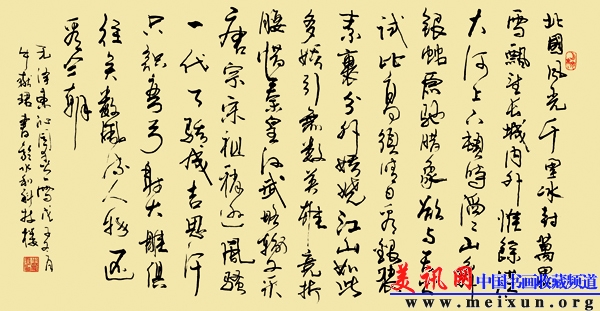 北國風光千里冰封萬里
雪飄望長城內外惟餘莽
大河上下頓時滔滔山舞
銀蛇原馳腊象欲与天公
試比高須晴日看銀裝
素裹分外妖嬈江山如此
多嬌引無數英雄競折
腰惜秦皇漢武略輸文采
唐宗宋祖稍遜風騷
一代天驕成吉思汗
只識彎弓射大雕俱
往矣數風流人物還
看今朝
毛澤東沁園春雪
美讯网 中国书画收藏频道
www.meixun.org